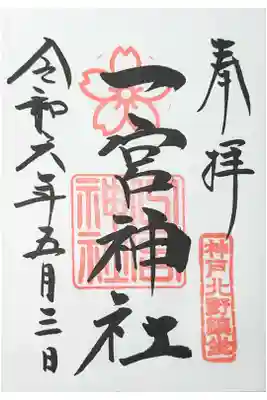 奉拝
神戸北野鎮坐
一宮神社
一宮神社
令和六年五月三日